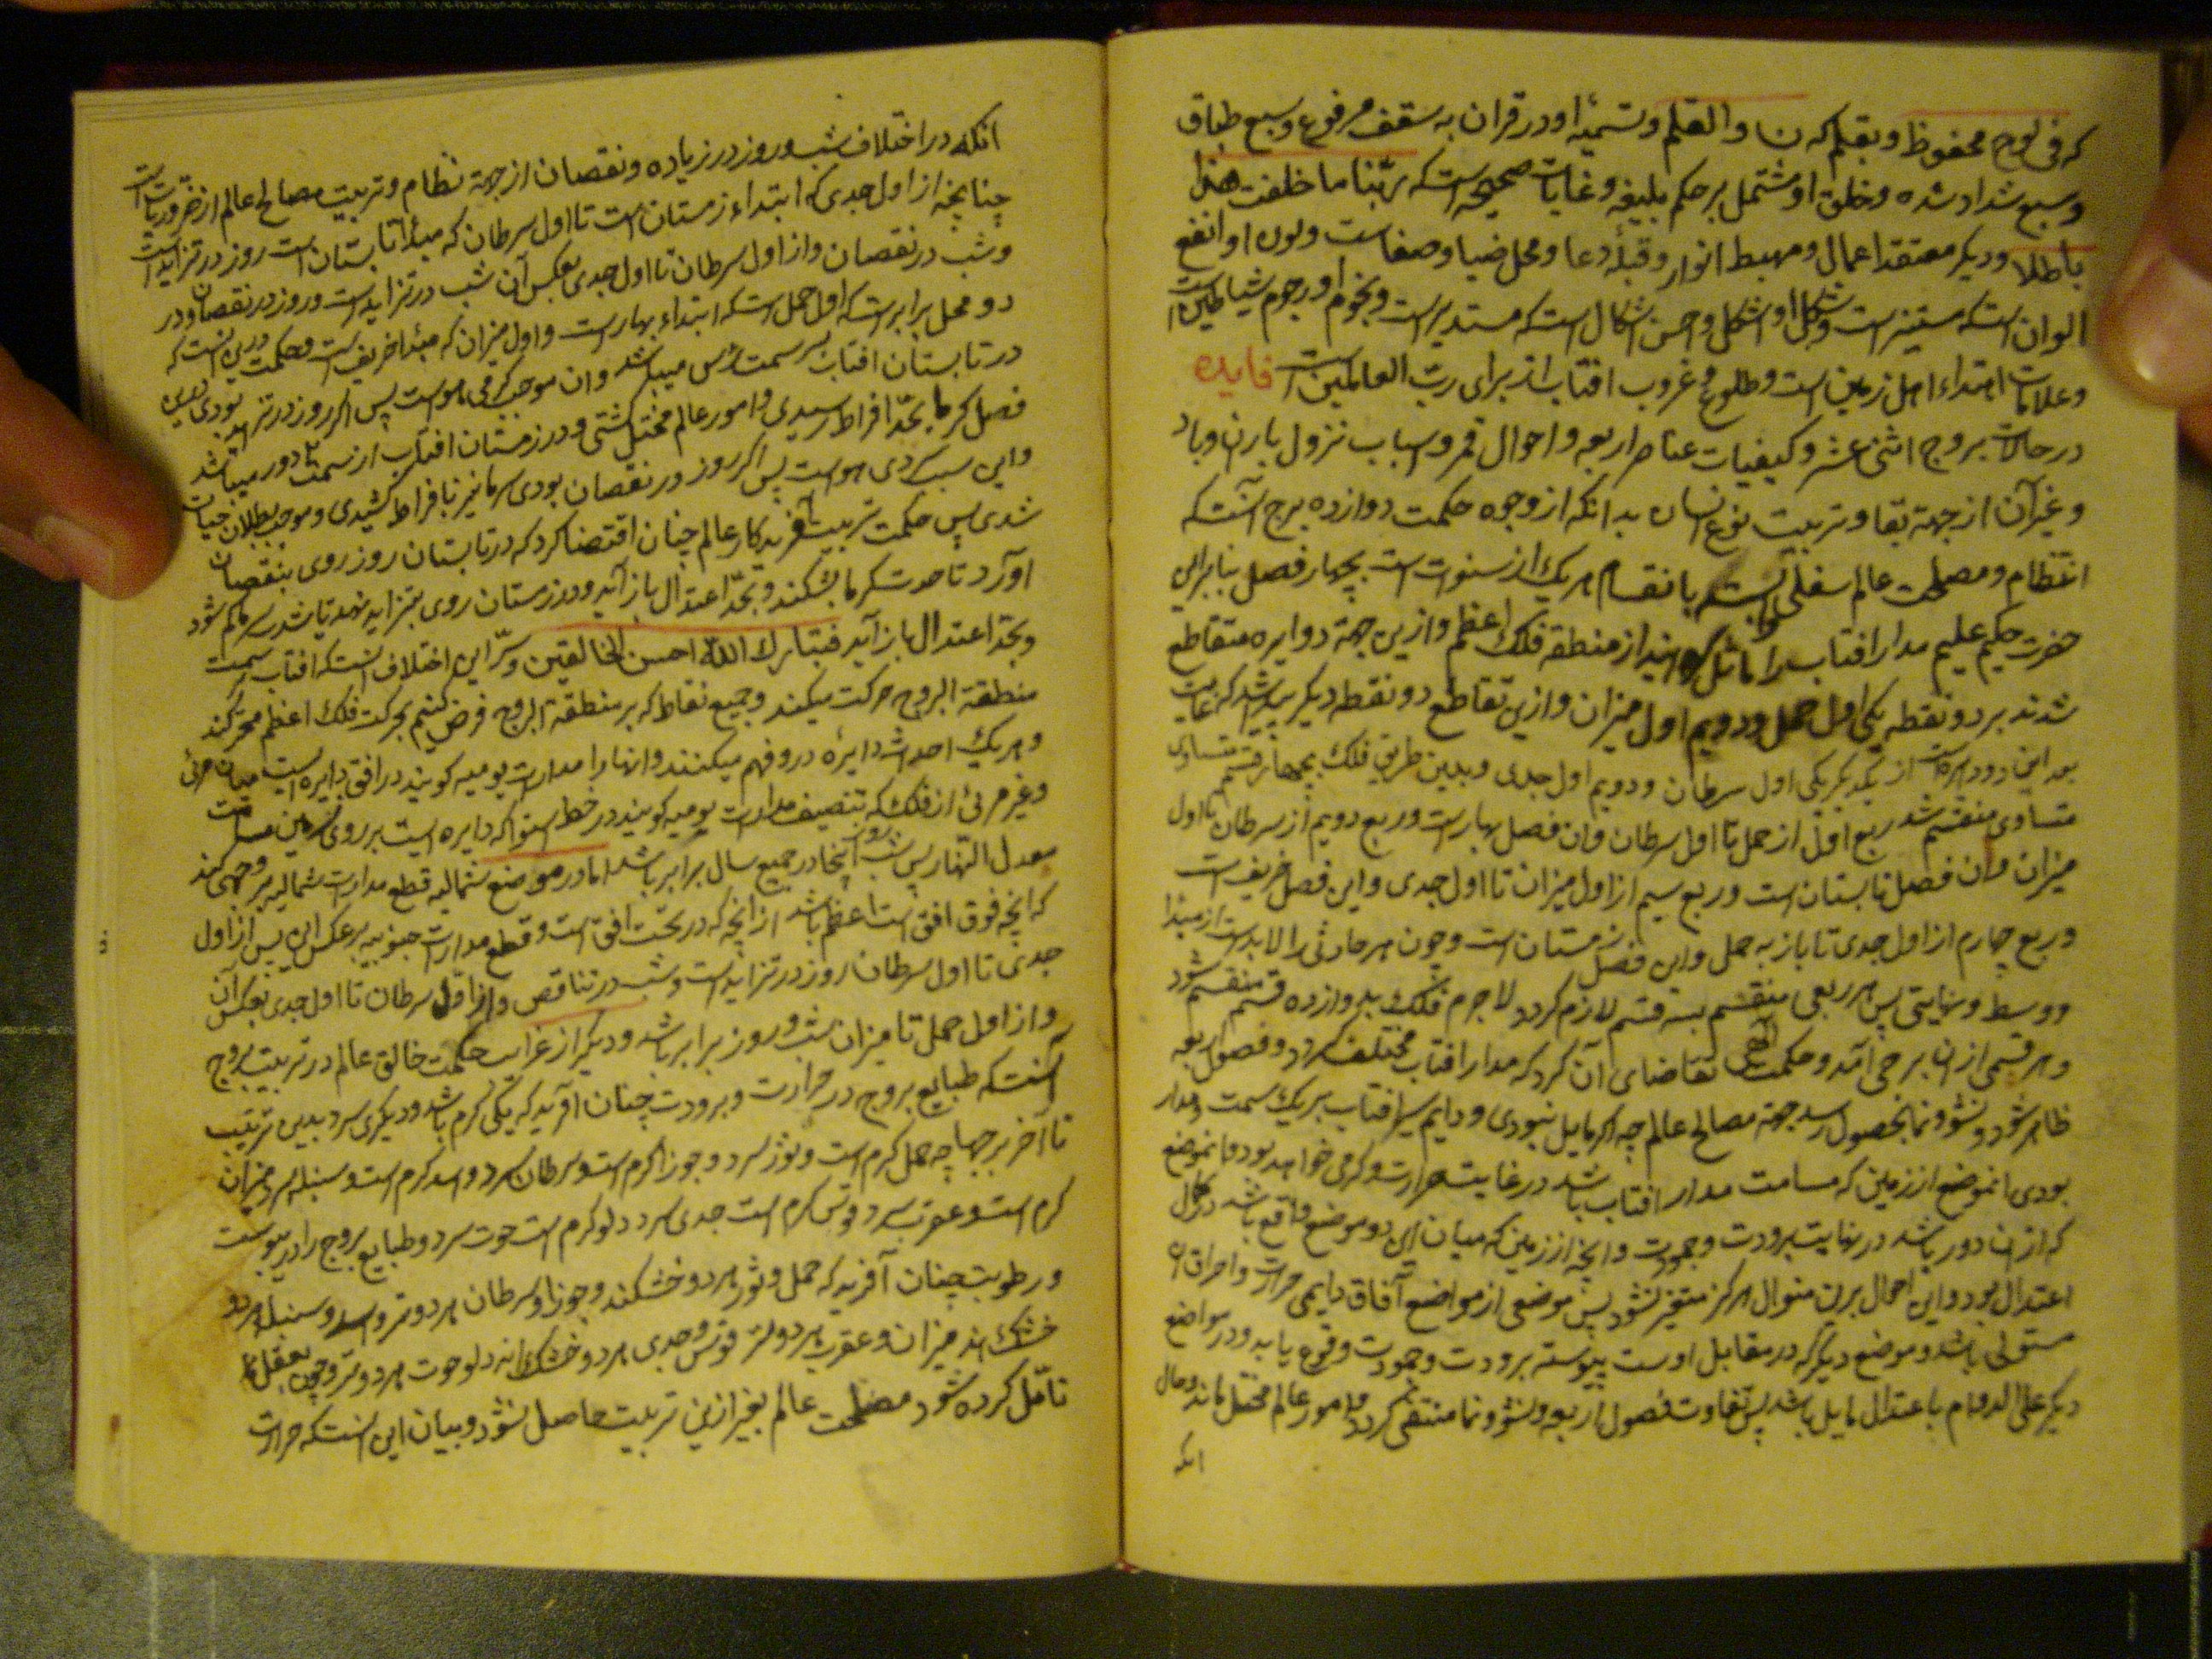 که فی لوح محفوظ و بقلم که ن والقلم و تسمیهٔ او در قران به سقف مرفوع و سبع طباق
و سبع شداد شده و خلق او مشتمل بر حکم بلیغه و غایات صحیحه است که ربّنا ما خلقت هذا
باطلا و دیگر معتقد اعمال و مهبط انوار و قبلهٔ دعا و محل ضیا و صفاست ولون او انفع
الوان است که مستنیر است و شکل او اشکل و احسن اشکال است که مستدیر است و نجوم او رجوم شیاطین است
و علامات اهتداء اهل زمین است و طلوع و غروب افتاب از برای ربّ العالمین است فایده
در حالات بروج اثنی عشر و کیفیات عناصر اربعه و احوال قمر و اسباب نزول باران و باد
و غیر آن از جهة بقا و تربیت نوع انسان بدانکه از وجوه حکمت دوازده برج آنست که
انتظام و مصلحت عالم سفلی بانقسام هر یک از سنوات است بچهار فصل بنابراین
حضرت حکیم علیم مدار افتاب را مائل از منطقه فلک اعظم و ازین جهة دوایره متقاطع
شدند بر دو نقطه یکی اول حمل و دویم اول میزان و ازین تقاطع دو نقطه دیگر که غایت
بعد این دو دایره است از یکدیگر یکی اول سرطان و دویم اول جدی و بدین طریق فلک بچهار قسم متساوی
متساوی منقسم شد ربع اول از حمل تا اول سرطان و ان فصل بهار است و ربع دویم از سرطان تا اول
میزان و ان فصل تابستان است و ربع سیم از اول میزان تا اول جدی و این فصل خریف است
و ربع چهارم از اول جدی تا باز به حمل و این فصل زمستان است و چون هر حادثی را لابد است از مبدا
و وسط و نهایتی پس هر ربعی منقسم بسه قسم لازم کردد لاجرم فلک بدوازده قسم منقسم شود
و هر قسمی از ان برجی آمد و حکمت الهی تقاضای آن کرد که مدار افتاب مختلف کردد و فصول اربعه
ظاهر شود و نشو و نما بحصول رسد جهة مصالح عالم چه اکر مایل نبودی و دایم سیر افتاب بر یک سمت و مدار
بودی انموضع از زمین که مسامت مدار افتاب باشد در غایت حرارت و کرمی خواهد بود و انموضع
که از ان دور باشد در نهایت برودت و جمودت و انچه از زمین که میان این دو موضع واقع باشد در کمال
اعتدال بود و این احوال برین منوال هرکز متغیر نشود پس موضعی از مواضع آفاق دایمی حرارت و احراق ان
مستولی باشد و موضع دیگر که در مقابل اوست پیوسته برودت و جمودت وقوع یابد و در مواضع
دیگر علی الدوام باعتدال مایل باشد پس تفاوت فصول اربعه و نشو و نما منتفی کردد و امور عالم مختل ماند و حال
انکه
انکه در اختلاف شب و روز در زیاده و نقصان از جهة نظام و تربیت مصالح عالم از ضروریات است
چنانچه از اول جدی که ابتداء زمستان است تا اول سرطان که مبدأ تابستان است روز در تزاید است
و شب در نقصان و از اول سرطان تا اول جدی بعکس آن شب در تزاید است و روز در نقصان و در
دو محل برابر است که اول حمل است که ابتداء بهار است و اول میزان که مبدأ خریف است و حکمت درین انست که
در تابستان افتاب بر سمت رأس میباشد و ان موجب کرمی هواست پس اکر روز در تزاید بودی درین
فصل کرما بحدّ افراط رسیدی و امور عالم مختل کشتی و در زمستان افتاب از سمت دور میباشد
و این سبب سردی هواست پس اکر روز در نقصان بودی سرما نیز بافراط کشیدی و موجب بطلان حیات
شدی پس حکمت تربیت آفریدکار عالم چنان اقتضا کرد که در تابستان روز روی بنقصان
اورد تا حدت کرما بشکند و بحدّ اعتدال باز آید و در زمستان روی بتزاید نهد تا شدت سرما کم شود
و بحدّ اعتدال باز آید فتبارک الله احسن الخالقین و سرّ این اختلاف انست که افتاب بر سمت
منطقة البروج حرکت میکند و جمیع نقاط که بر منطقة البروج فرض کنیم بحرکت فلک اعظم متحرکند
و هر یک احداث دایره در وهم میکنند و انها را مدارات یومیه کویند در افق دایره ایست میان مرئی
و غیر مرئی از فلک که تنصیف مدارات یومیه کویند در خط استوا که دایره ایست بر روی زمین مسامت
معدل النهار پس شب و روز آنجا در جمیع سال برابر باشد اما در مواضع شمالیه قطع مدارات شمالیه بر وجهی کند
که انچه فوق افق است اعظم باشد از انچه که در تحت افق است و قطع مدارات جنوبیه بر عکس این پس از اول
جدی تا اول سرطان روز در تزاید است و شب در تناقص و از اول سرطان تا اول جدی بعکس آن
و از اول حمل تا میزان شب و روز برابر باشد و دیگر از غرایب حکمت خالق عالم در تربیت بروج
آنست که طبایع بروج در حرارت و برودت چنان آفرید که یکی کرم باشد و دیگری سرد بدین ترتیب
تا آخر برجها چه حمل کرم است و ثور سرد و جوزا کرم است و سرطان سرد و اسد کرم است و سنبله سرد میزان
کرم است و عقرب سرد و قوس کرم است جدی سرد دلو کرم است حوت سرد و طبایع بروج را در یبوست
و رطوبت چنان آفرید که حمل و ثور هر دو خشکند و جوزا و سرطان هر دو تر و اسد و سنبله هر دو
خشک اند میزان و عقرب هر دو تر قوس و جدی هر دو خشک اند دلو حوت هر دو تر و چون بعقل
تامّل کرده شود مصلحت عالم بغیر ازین تربیت حاصل نشود و بیان این انست که حرارت